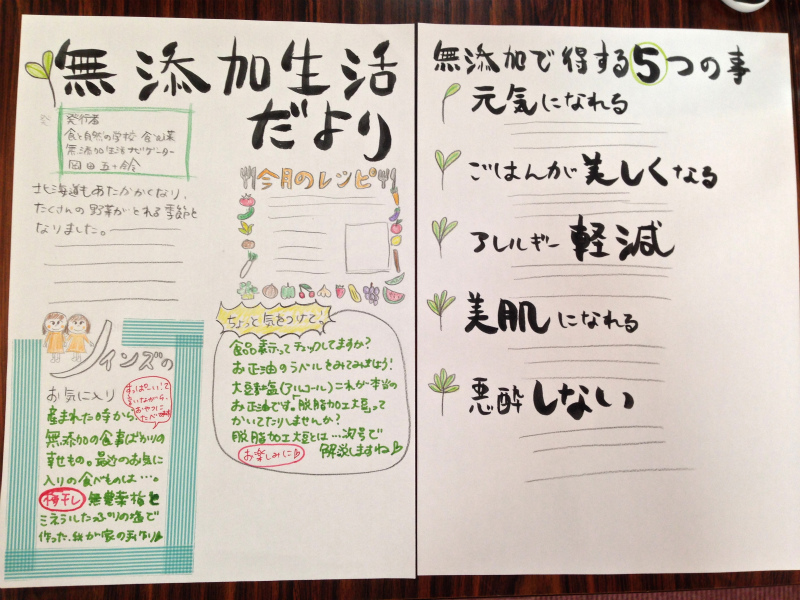 無添加生活
だより
発行者
食と自然の学校 食
無添加生活ナビゲーター
岡田五十鈴
北海道もあたたかくなり、
たくさんの野菜がとれる季節と
なりました。
今月のレシピ
ツインズの
お気に入り
すっぱーいって
言いながら、
おやつに
たべてます
産まれた時から
無添加の食事ばかりの
幸せもの。最近のお気に
入りの食べものは…。
梅干し 無農薬梅と
ミネラルたっぷりの塩で
作った、我が家の手作り♪
ちょっと気をつけて。
食品表示ってチェックしてますか?
お正油のラベルをみてみましょう!
大豆・塩(アルコール)これが本当の
お正油です。「脱脂加工大豆」って
かいてたりしませんか?
脱脂加工大豆とは…次号で
お楽しみに♪ 解説しますね♪
無添加で得する5つの事
元気になれる
ごはんが美しくなる
アレルギー軽減
美肌になれる
悪酔しない